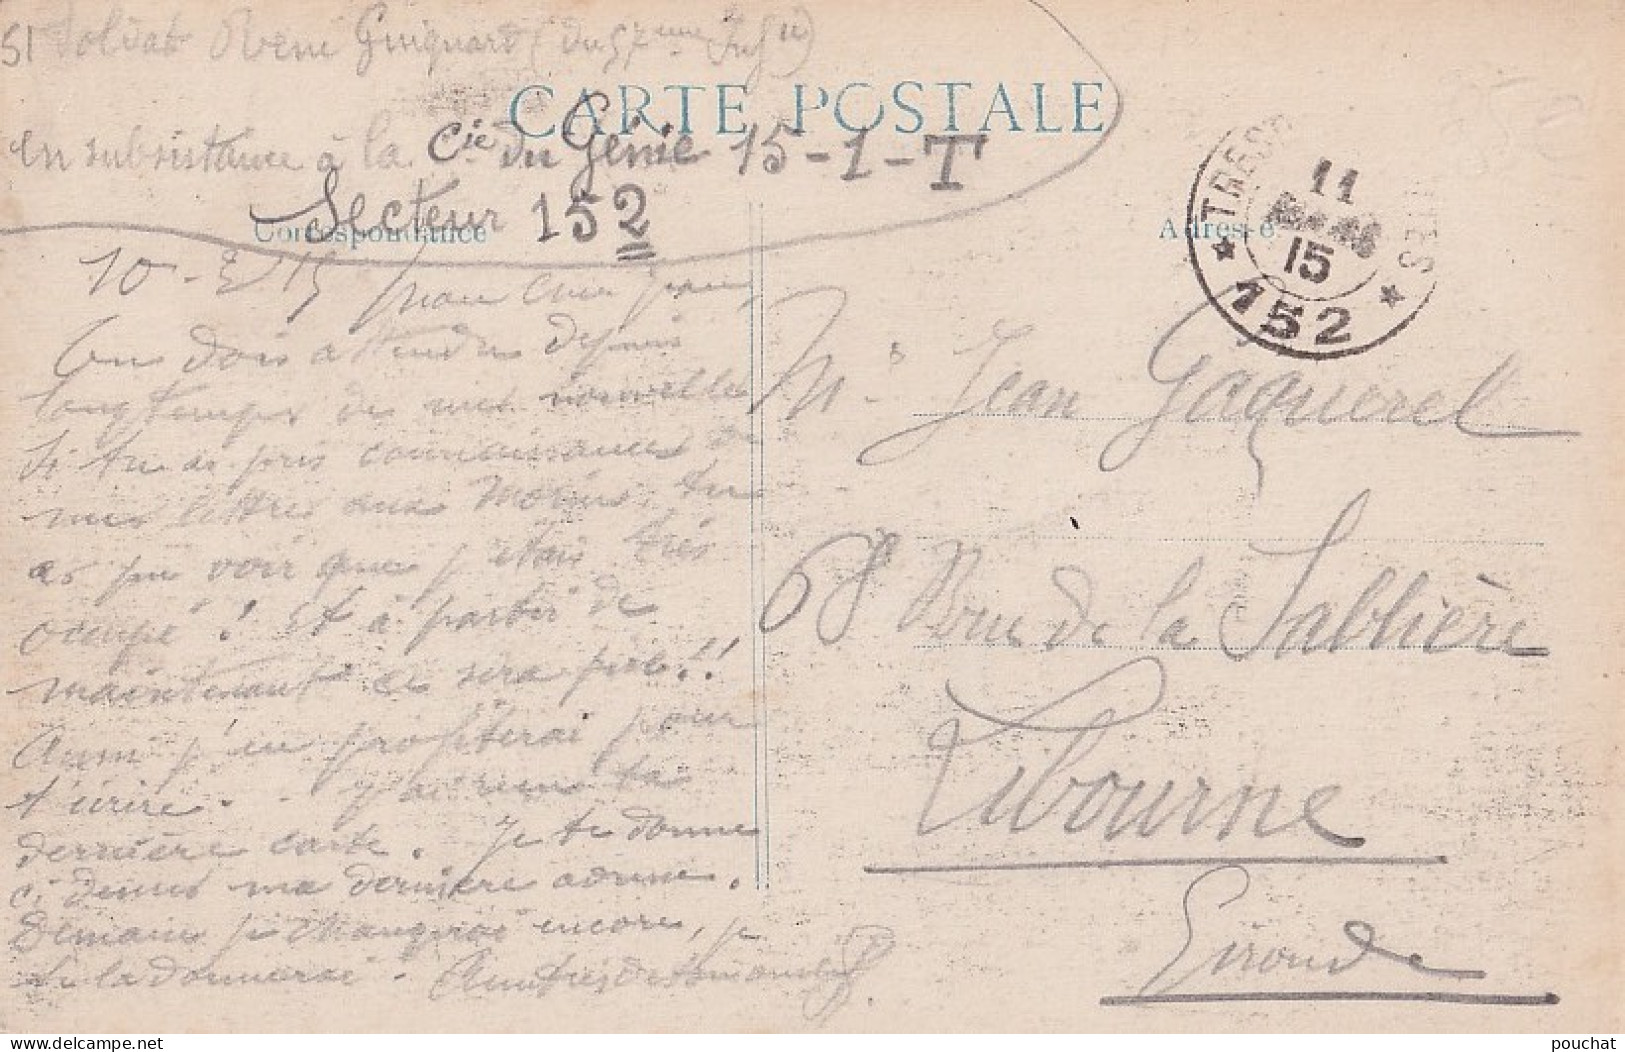 Soldat René Guignard (du 57eme Infie)
CARTE POSTALE
en subsistance à la Cie du Génie 15-1-T
Secteur 152
Correspondance
Adresse
TRESOR
11
15
152
10-3-15 Mon cher Jean,
Tu dois attendre depuis
longtemps de mes nouvelles
Si tu as pris connaissance de
mes lettres aux Morin, tu
as pu voir que j'étais très
occupé ! Et à partir de
maintenant ce sera pire !!
Aussi j'en profiterai pour
t'écrire. J'ai reçu ta
dernière carte. Je te donne
ci dessus ma dernière adresse.
Demain je changerai encore, je
te la donnerai.
Mr Jean Gaquerel
68 Rue de la Sablière
Libourne
Gironde
pouchat